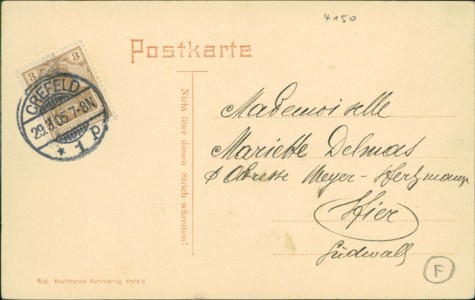 4150
Postkarte
3 3
CREFELD
29.3.05.7-8N
* 1 p
Nicht über diesen Strich schreiben!
Mademoiselle
Mariette Delmas
p Adresse Meyer-
Hier
Südwall
F
Rud. Knuffmanns Kunstverlag Krefeld